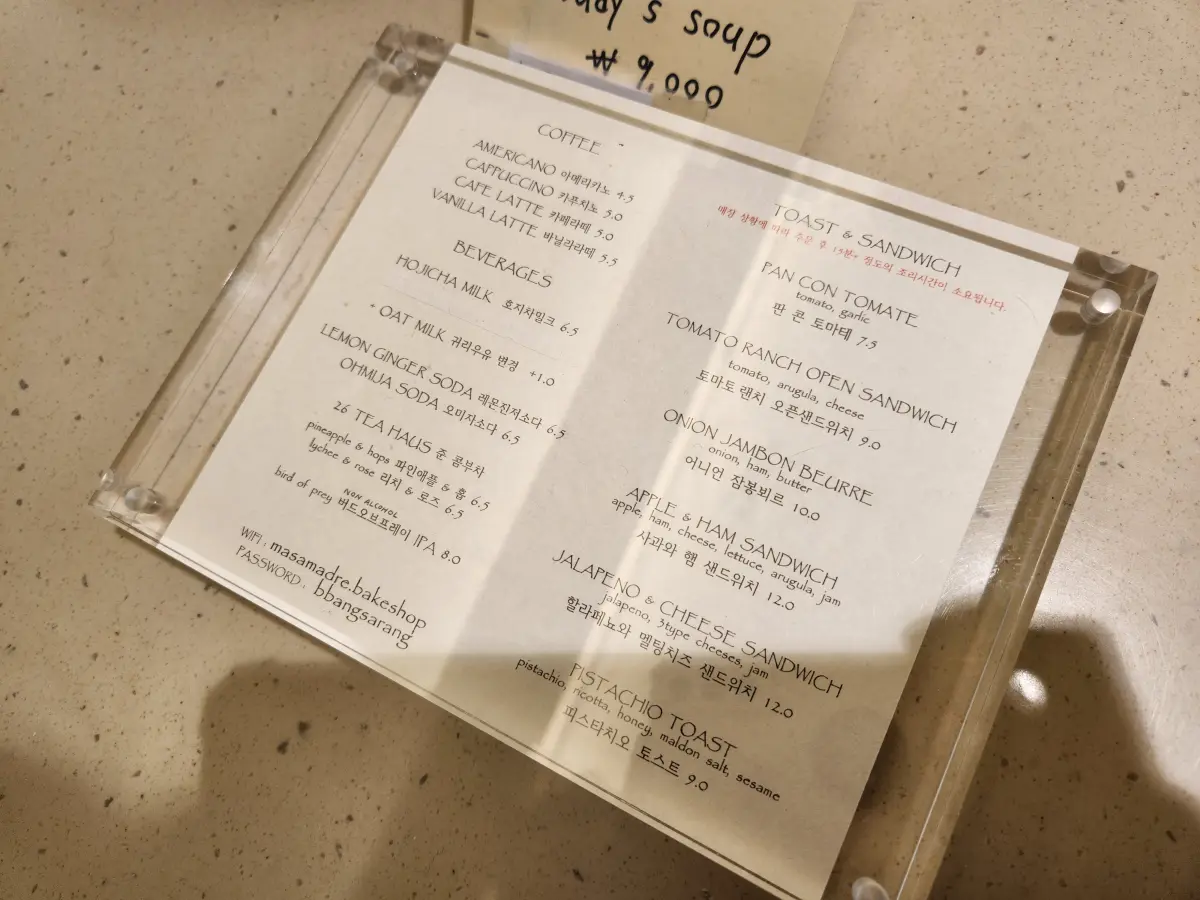 s soup
₩ 9,000
COFFEE
AMERICANO 아메리카노 4.5
CAPPUCCINO 카푸치노 5.0
CAFE LATTE 카페라떼 5.0
VANILLA LATTE 바닐라라떼 5.5
BEVERAGES
HOJICHA MILK 호지차밀크 6.5
OAT MILK 귀리우유 변경 +1.0
LEMON GINGER SODA 레몬진저소다 6.5
OHMIJA SODA 오미자소다 6.5
26 TEA HAUS 준 콤부차
pineapple & hops 파인애플 & 홉 6.5
lychee & rose 리치 & 로즈 6.5
NON ALCOHOL
bird of prey 버드오브프레이 IPA 8.0
WIFI : masamadre.bakeshop
PASSWORD : bbangsarang
TOAST & SANDWICH
매장 상황에 따라 주문 후 15분+ 정도의 조리시간이 소요됩니다.
PAN CON TOMATE
tomato, garlic
판 콘 토마테 7.5
TOMATO RANCH OPEN SANDWICH
tomato, arugula, cheese
토마토 랜치 오픈샌드위치 9.0
ONION JAMBON BEURRE
onion, ham, butter
어니언 잠봉뵈르 10.0
APPLE & HAM SANDWICH
apple, ham, cheese, lettuce, arugula, jam
사과와 햄 샌드위치 12.0
JALAPENO & CHEESE SANDWICH
jalapeno, 3type cheeses, jam
할라페뇨와 멜팅치즈 샌드위치 12.0
PISTACHIO TOAST
pistachio, ricotta, honey, maldon salt, sesame
피스타치오 토스트 9.0